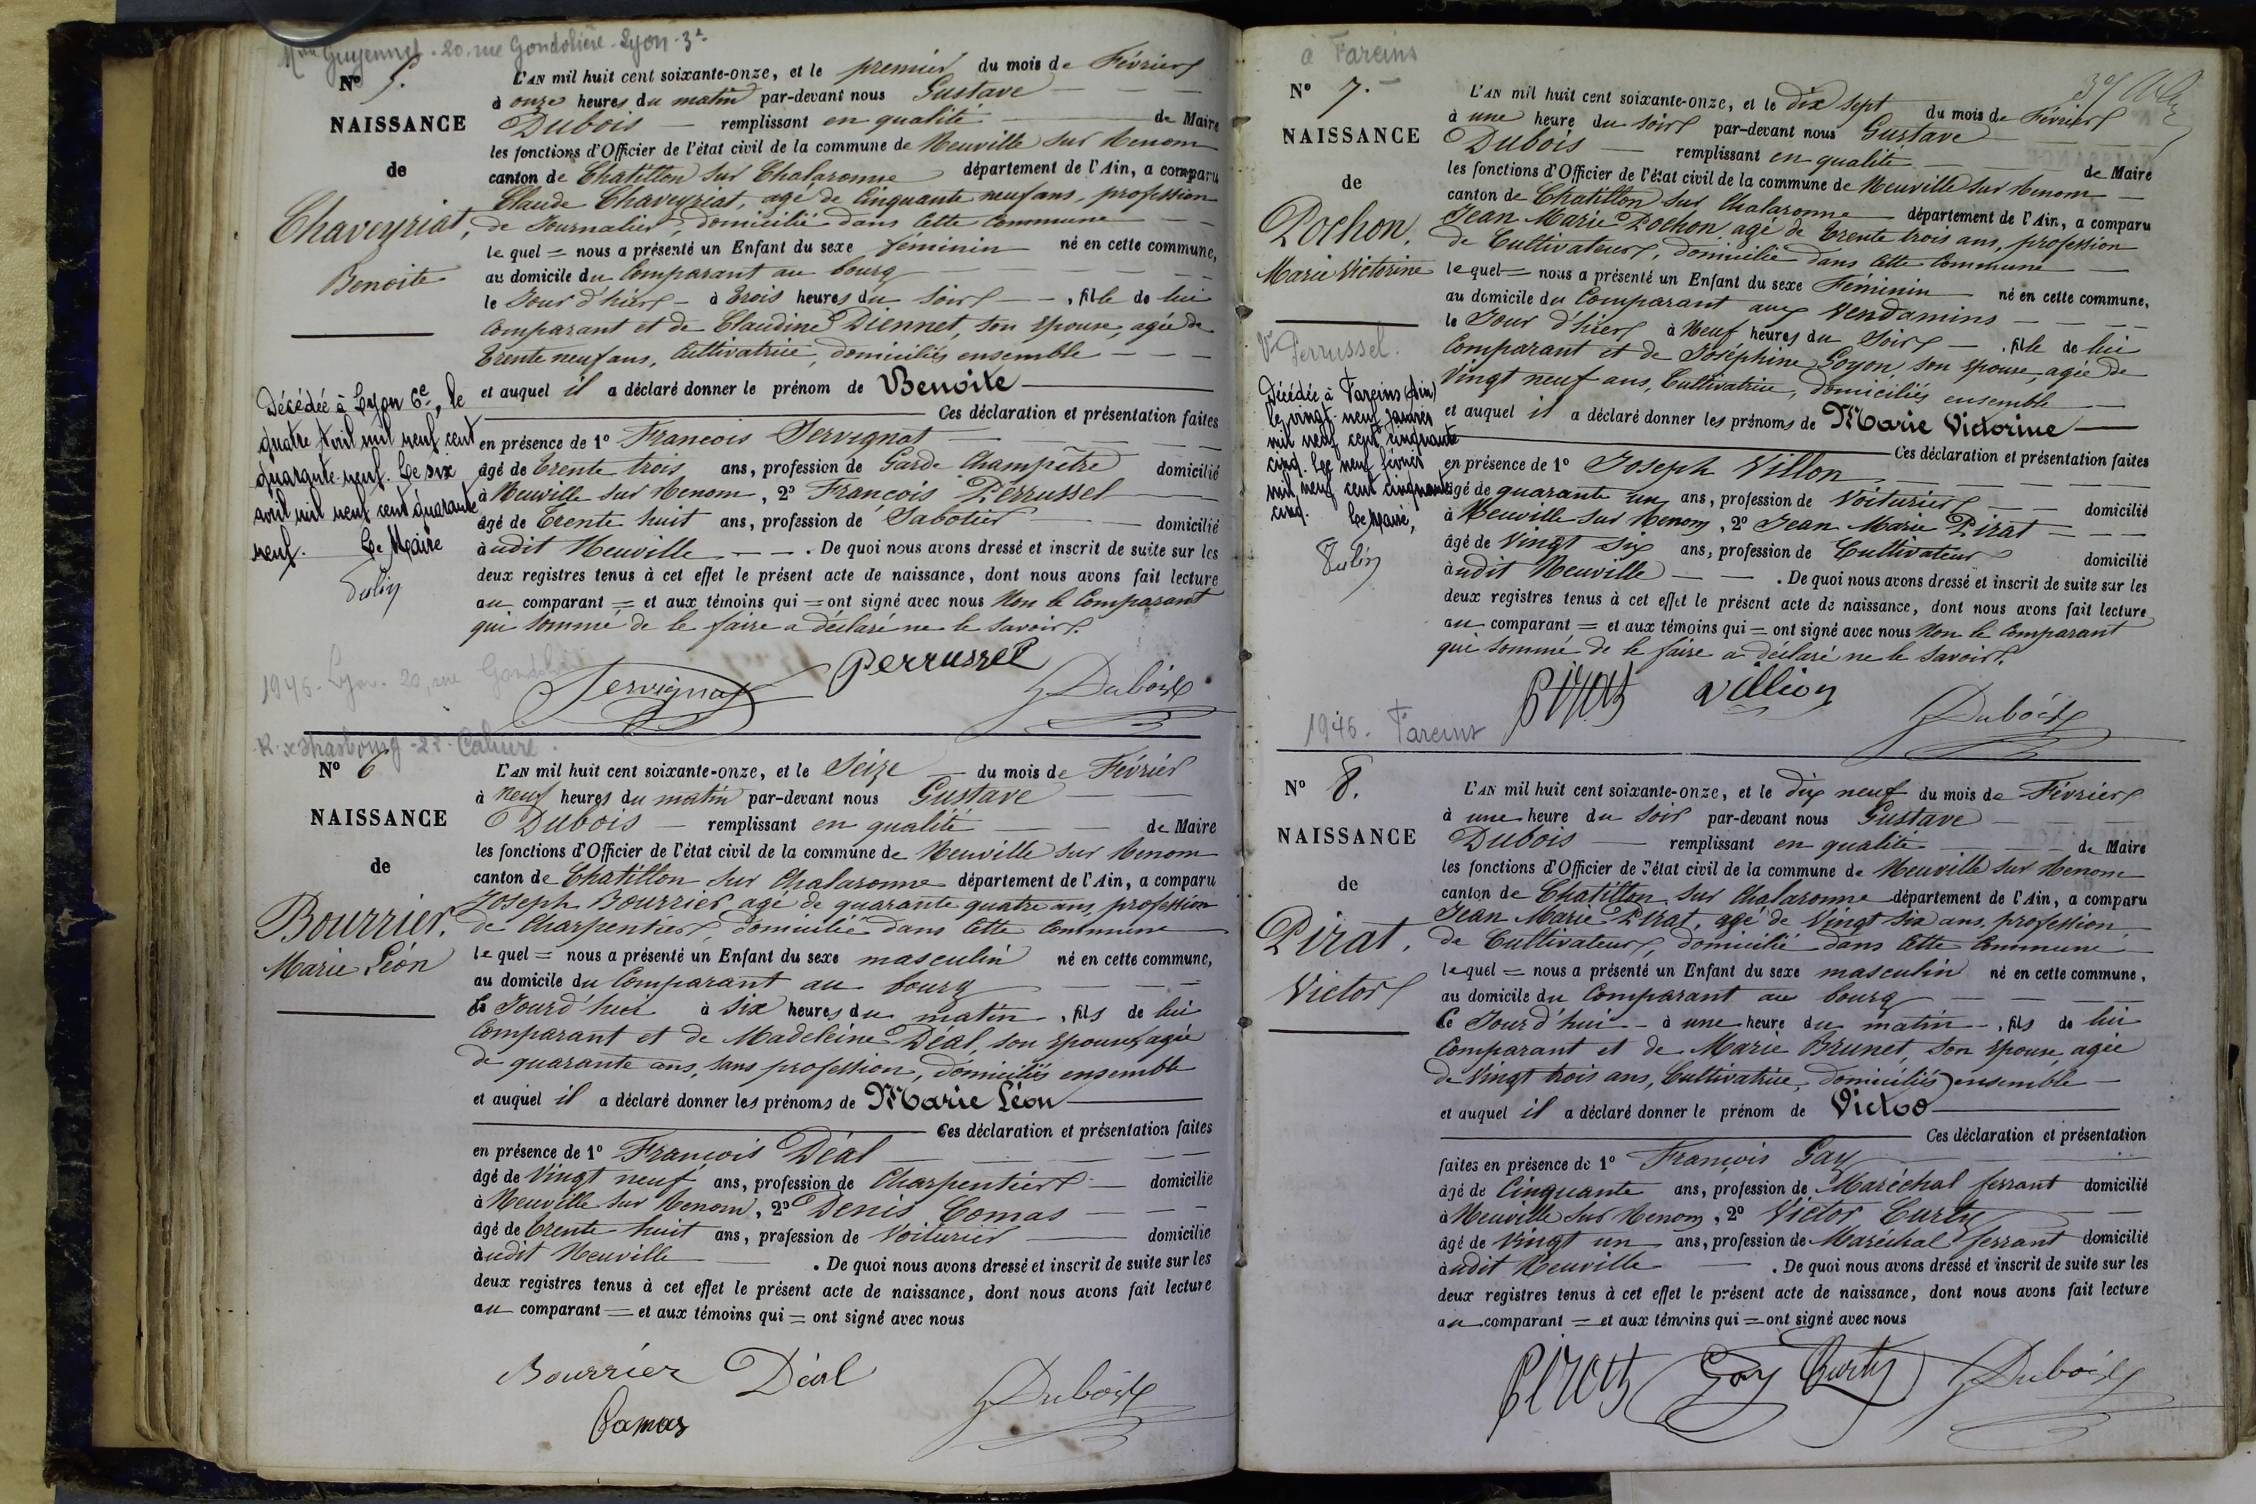 Mme Guyennet - 20. rue Gondolière - Lyon - 3e
Nº 5.
NAISSANCE
de
Chaveyriat,
Benoite
L'AN mil huit cent soixante-onze, et le premier du mois de Février
à onze heures du matin par-devant nous Gustave
Dubois remplissant en qualité de Maire
les fonctions d'Officier de l'état civil de la commune de Neuville sur Renom
canton de Chatillon sur Chalaronne département de l'Ain, a comparu
Claude Chaveyriat, agé de Cinquante neuf ans, profession
de Journalier, domicilié dans cette Commune
lequel = nous a présenté un Enfant du sexe féminin né en cette commune,
au domicile du Comparant au bourg
le Jour d'hier à trois heures du soir, fille de lui
Comparant et de Claudine Diennet, son épouse, agée de
trente neuf ans, Cultivatrice, domiciliés ensemble
et auquel il a déclaré donner le prénom de Benoite
Ces déclaration et présentation faites
en présence de 1º François Servignat
âgé de trente trois ans, profession de Garde Champêtre domicilié
à Neuville sur Renom, 2º François Perrussel
âgé de trente huit ans, profession de Sabotier domicilié
audit Neuville. De quoi nous avons dressé et inscrit de suite sur les
deux registres tenus à cet effet le présent acte de naissance, dont nous avons fait lecture
au comparant = et aux témoins qui = ont signé avec nous Non le Comparant
qui sommé de le faire a déclaré ne le savoir.
Décédée à Lyon 6e, le
quatre Avril mil neuf cent
quarante-neuf. Le six
avril mil neuf cent quarante
neuf. Le Maire
Servignat Perrussel Dubois
1946 - Lyon - 20, rue Gondolière
R. de Strasbourg - 23 - Caluire.
Nº 6
NAISSANCE
de
Bourrier.
Marie Léon
L'AN mil huit cent soixante-onze, et le Seize du mois de Février
à neuf heures du matin par-devant nous Gustave
Dubois remplissant en qualité de Maire
les fonctions d'Officier de l'état civil de la commune de Neuville sur Renom
canton de Chatillon sur Chalaronne département de l'Ain, a comparu
Joseph Bourrier agé de quarante quatre ans, profession
de Charpentier, domicilié dans cette Commune
lequel = nous a présenté un Enfant du sexe masculin né en cette commune,
au domicile du Comparant au bourg
Ce Jourd'hui à six heures du matin, fils de lui
Comparant et de Madeleine Déal, son épouse, agée
de quarante ans, sans profession, domiciliés ensemble
et auquel il a déclaré donner les prénoms de Marie Léon
Ces déclaration et présentation faites
en présence de 1º François Déal
âgé de Vingt neuf ans, profession de Charpentier domicilié
à Neuville sur Renom, 2º Denis Comas
âgé de trente huit ans, profession de Voiturier domicilié
audit Neuville. De quoi nous avons dressé et inscrit de suite sur les
deux registres tenus à cet effet le présent acte de naissance, dont nous avons fait lecture
au comparant = et aux témoins qui = ont signé avec nous
Bourrier Déal Dubois
Camas
à Fareins
Nº 7.
NAISSANCE
de
Pochon.
Marie Victorine
L'AN mil huit cent soixante-onze, et le dix sept du mois de Février
à une heure du soir par-devant nous Gustave
Dubois remplissant en qualité de Maire
les fonctions d'Officier de l'état civil de la commune de Neuville sur Renom
canton de Chatillon sur Chalaronne département de l'Ain, a comparu
Jean Marie Pochon agé de trente trois ans, profession
de Cultivateur, domicilié dans cette Commune
lequel = nous a présenté un Enfant du sexe Féminin né en cette commune,
au domicile du Comparant aux Vendamins
le Jour d'hier à Neuf heures du Soir, fille de lui
Comparant et de Joséphine Goyon, son épouse, agée de
Vingt neuf ans, Cultivatrice, domiciliés ensemble
et auquel il a déclaré donner les prénoms de Marie Victorine
Ces déclaration et présentation faites
en présence de 1º Joseph Villon
âgé de quarante un ans, profession de Voiturier domicilié
à Neuville sur Renom, 2º Jean Marie Pirat
âgé de Vingt six ans, profession de Cultivateur domicilié
audit Neuville. De quoi nous avons dressé et inscrit de suite sur les
deux registres tenus à cet effet le présent acte de naissance, dont nous avons fait lecture
au comparant = et aux témoins qui = ont signé avec nous Non le Comparant
qui sommé de le faire a déclaré ne le savoir.
Ve Perrussel.
Décédée à Fareins (Ain)
le vingt-neuf janvier
mil neuf cent cinquante
cinq. Le neuf février
mil neuf cent cinquante
cinq. Le Maire,
Pirat Villion Dubois
1946. Fareins
Nº 8.
NAISSANCE
de
Pirat.
Victor
L'AN mil huit cent soixante-onze, et le dix neuf du mois de Février
à une heure du soir par-devant nous Gustave
Dubois remplissant en qualité de Maire
les fonctions d'Officier de l'état civil de la commune de Neuville sur Renom
canton de Chatillon sur Chalaronne département de l'Ain, a comparu
Jean Marie Pirat, agé de Vingt six ans, profession
de Cultivateur, domicilié dans cette Commune
lequel = nous a présenté un Enfant du sexe masculin né en cette commune,
au domicile du Comparant au bourg
Ce Jour d'hui à une heure du matin, fils de lui
Comparant et de Marie Brunet, son épouse, agée
de Vingt trois ans, Cultivatrice, domiciliés ensemble
et auquel il a déclaré donner le prénom de Victor
Ces déclaration et présentation
faites en présence de 1º François Gay
âgé de Cinquante ans, profession de Maréchal ferrant domicilié
à Neuville sur Renom, 2º Victor Curty
âgé de vingt un ans, profession de Maréchal ferrant domicilié
audit Neuville. De quoi nous avons dressé et inscrit de suite sur les
deux registres tenus à cet effet le présent acte de naissance, dont nous avons fait lecture
au comparant = et aux témoins qui = ont signé avec nous
Pirat Gay Curty Dubois